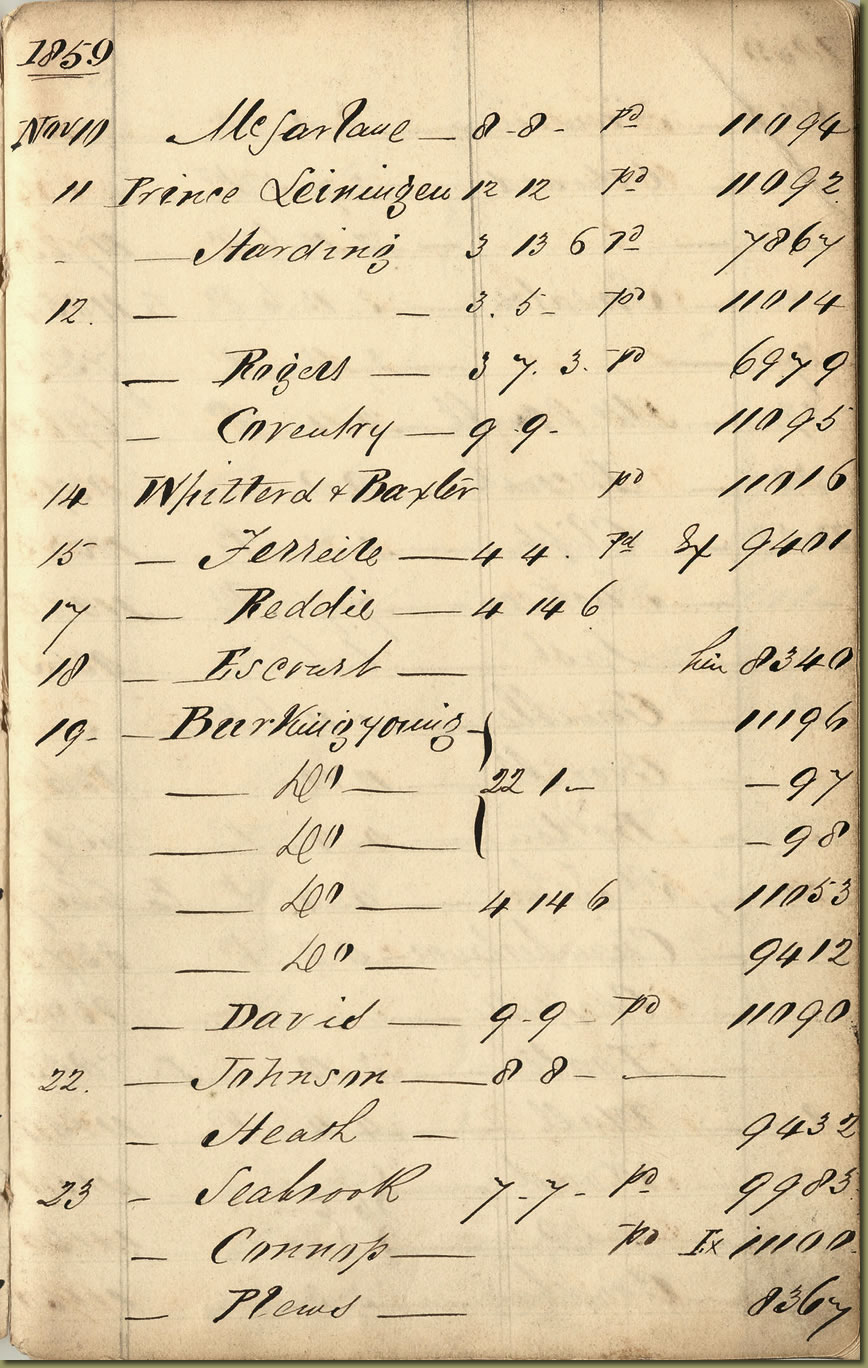 1859
Nov 10 McFarlane — 8-8- pd 11094
11 Prince Leiningen 12 12 pd 11092
- — Harding 3 13 6 pd 7867
12. — — 3. 5- pd 11014
— Rogers — 3 7. 3. pd 6979
— Coventry — 9 9- 11095
14 Whitterd & Baxter pd 11016
15 — Ferreite — 4 4. pd Ex 9401
17 — Reddie — 4 14 6
18 — Escourt — 8340
19- — Burkingyoung — 11196
— Do — 22 1 - — 97
— Do — — 98
— Do — 4 14 6 11053
— Do — 9412
— Davis — 9-9- pd 11090
22. — Johnson — 8 8- —
— Heath — 9432
23 - Seabrook 7-7- pd 9983
— Connop — pd Ex 11100
— Plews — 8367